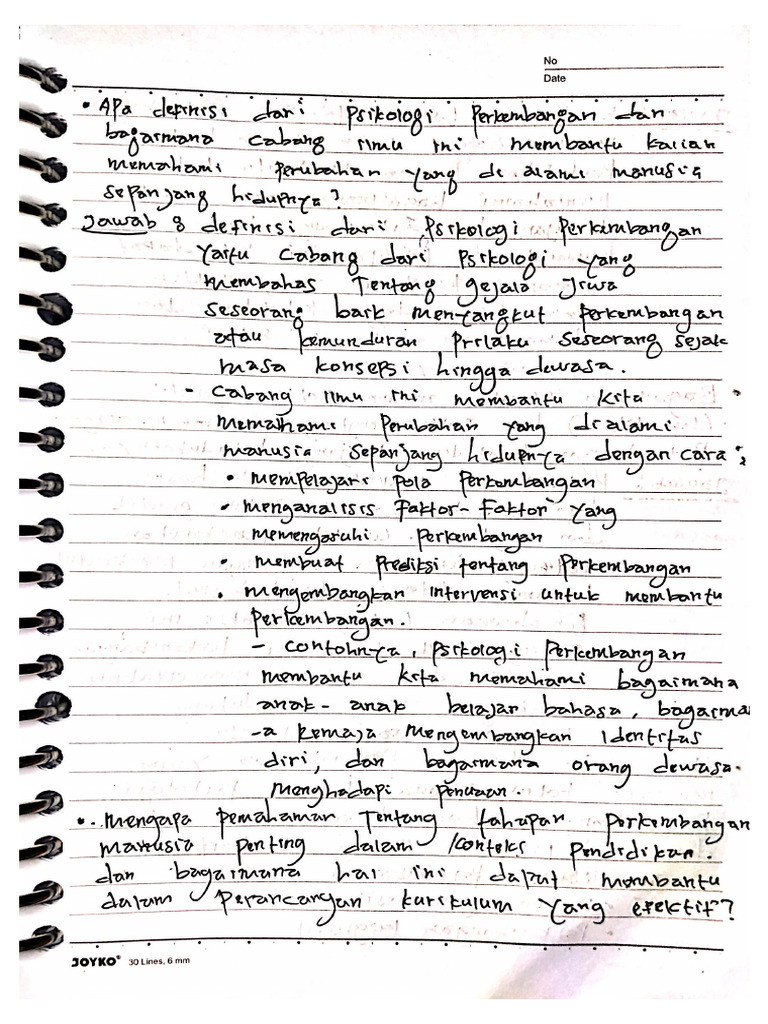 No
Date
• Apa definisi dari psikologi perkembangan dan
bagaimana cabang ilmu ini membantu kalian
memahami perubahan yang di alami manusia
sepanjang hidupnya?
Jawab : definisi dari psikologi perkembangan
yaitu cabang dari psikologi yang
membahas Tentang gejala Jiwa
seseorang baik menyangkut perkembangan
atau kemunduran prilaku seseorang sejak
masa konsepsi hingga dewasa.
- cabang ilmu ini membantu kita
memahami perubahan yang dialami
manusia sepanjang hidupnya dengan cara :
• mempelajari pola perkembangan
• menganalisis Faktor-Faktor yang
memengaruhi perkembangan
• membuat prediksi tentang perkembangan
• mengembangkan intervensi untuk membantu
perkembangan.
- contohnya, psikologi perkembangan
membantu kita memahami bagaimana
anak-anak belajar bahasa, bagaiman
-a remaja mengembangkan Identitas
diri, dan bagaimana orang dewasa
menghadapi penuaan.
• mengapa pemahaman Tentang tahapan perkembangan
manusia penting dalam konteks pendidikan.
dan bagaimana hal ini dapat membantu
dalam perancangan kurikulum yang efektif?
JOYKO® 30 Lines, 6 mm